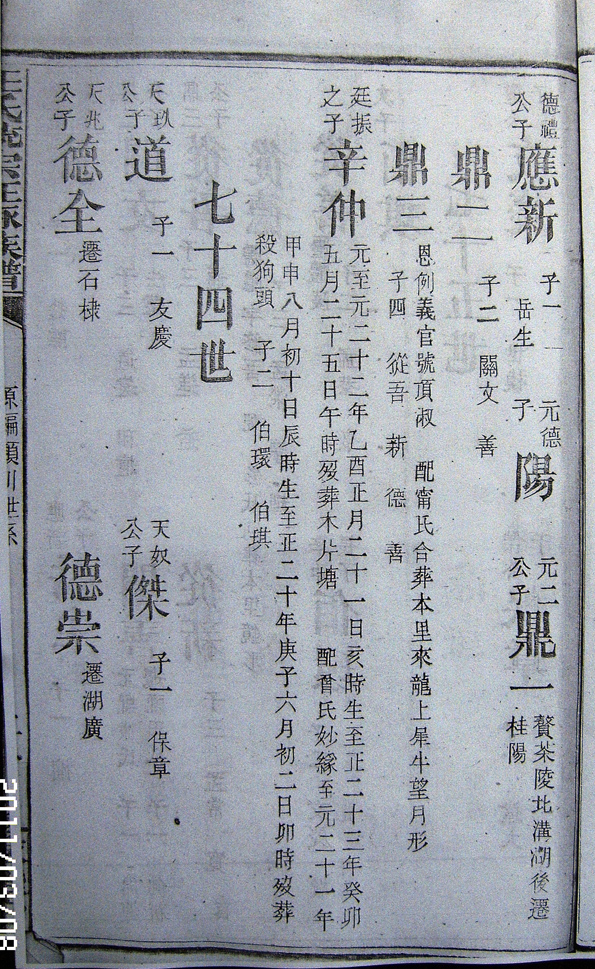 德禮公子 應新 子一 岳生 元德子 陽 元二公子 鼎一 贅茶陵北溝湖後遷桂陽
鼎二 子二 關文 善
鼎三 恩例義官號頂淑 配甯氏合葬本里來龍上犀牛望月形
子四 從吾 新 德 善
廷振之子 辛仲 元至元二十二年乙酉正月二十一日亥時生至正二十三年癸卯
五月二十五日午時歿葬木片塘 配曾氏妙緣至元二十一年
甲申八月初十日辰時生至正二十年庚子六月初二日卯時歿葬
殺狗頭 子二 伯環 伯琪
七十四世
天玖公子 道 子一 友慶 天奴公子 傑 子一 保章
天兆公子 德全 遷石棣 德崇 遷湖廣
王氏 宗 族譜
原編潁川世系
2011/03/08